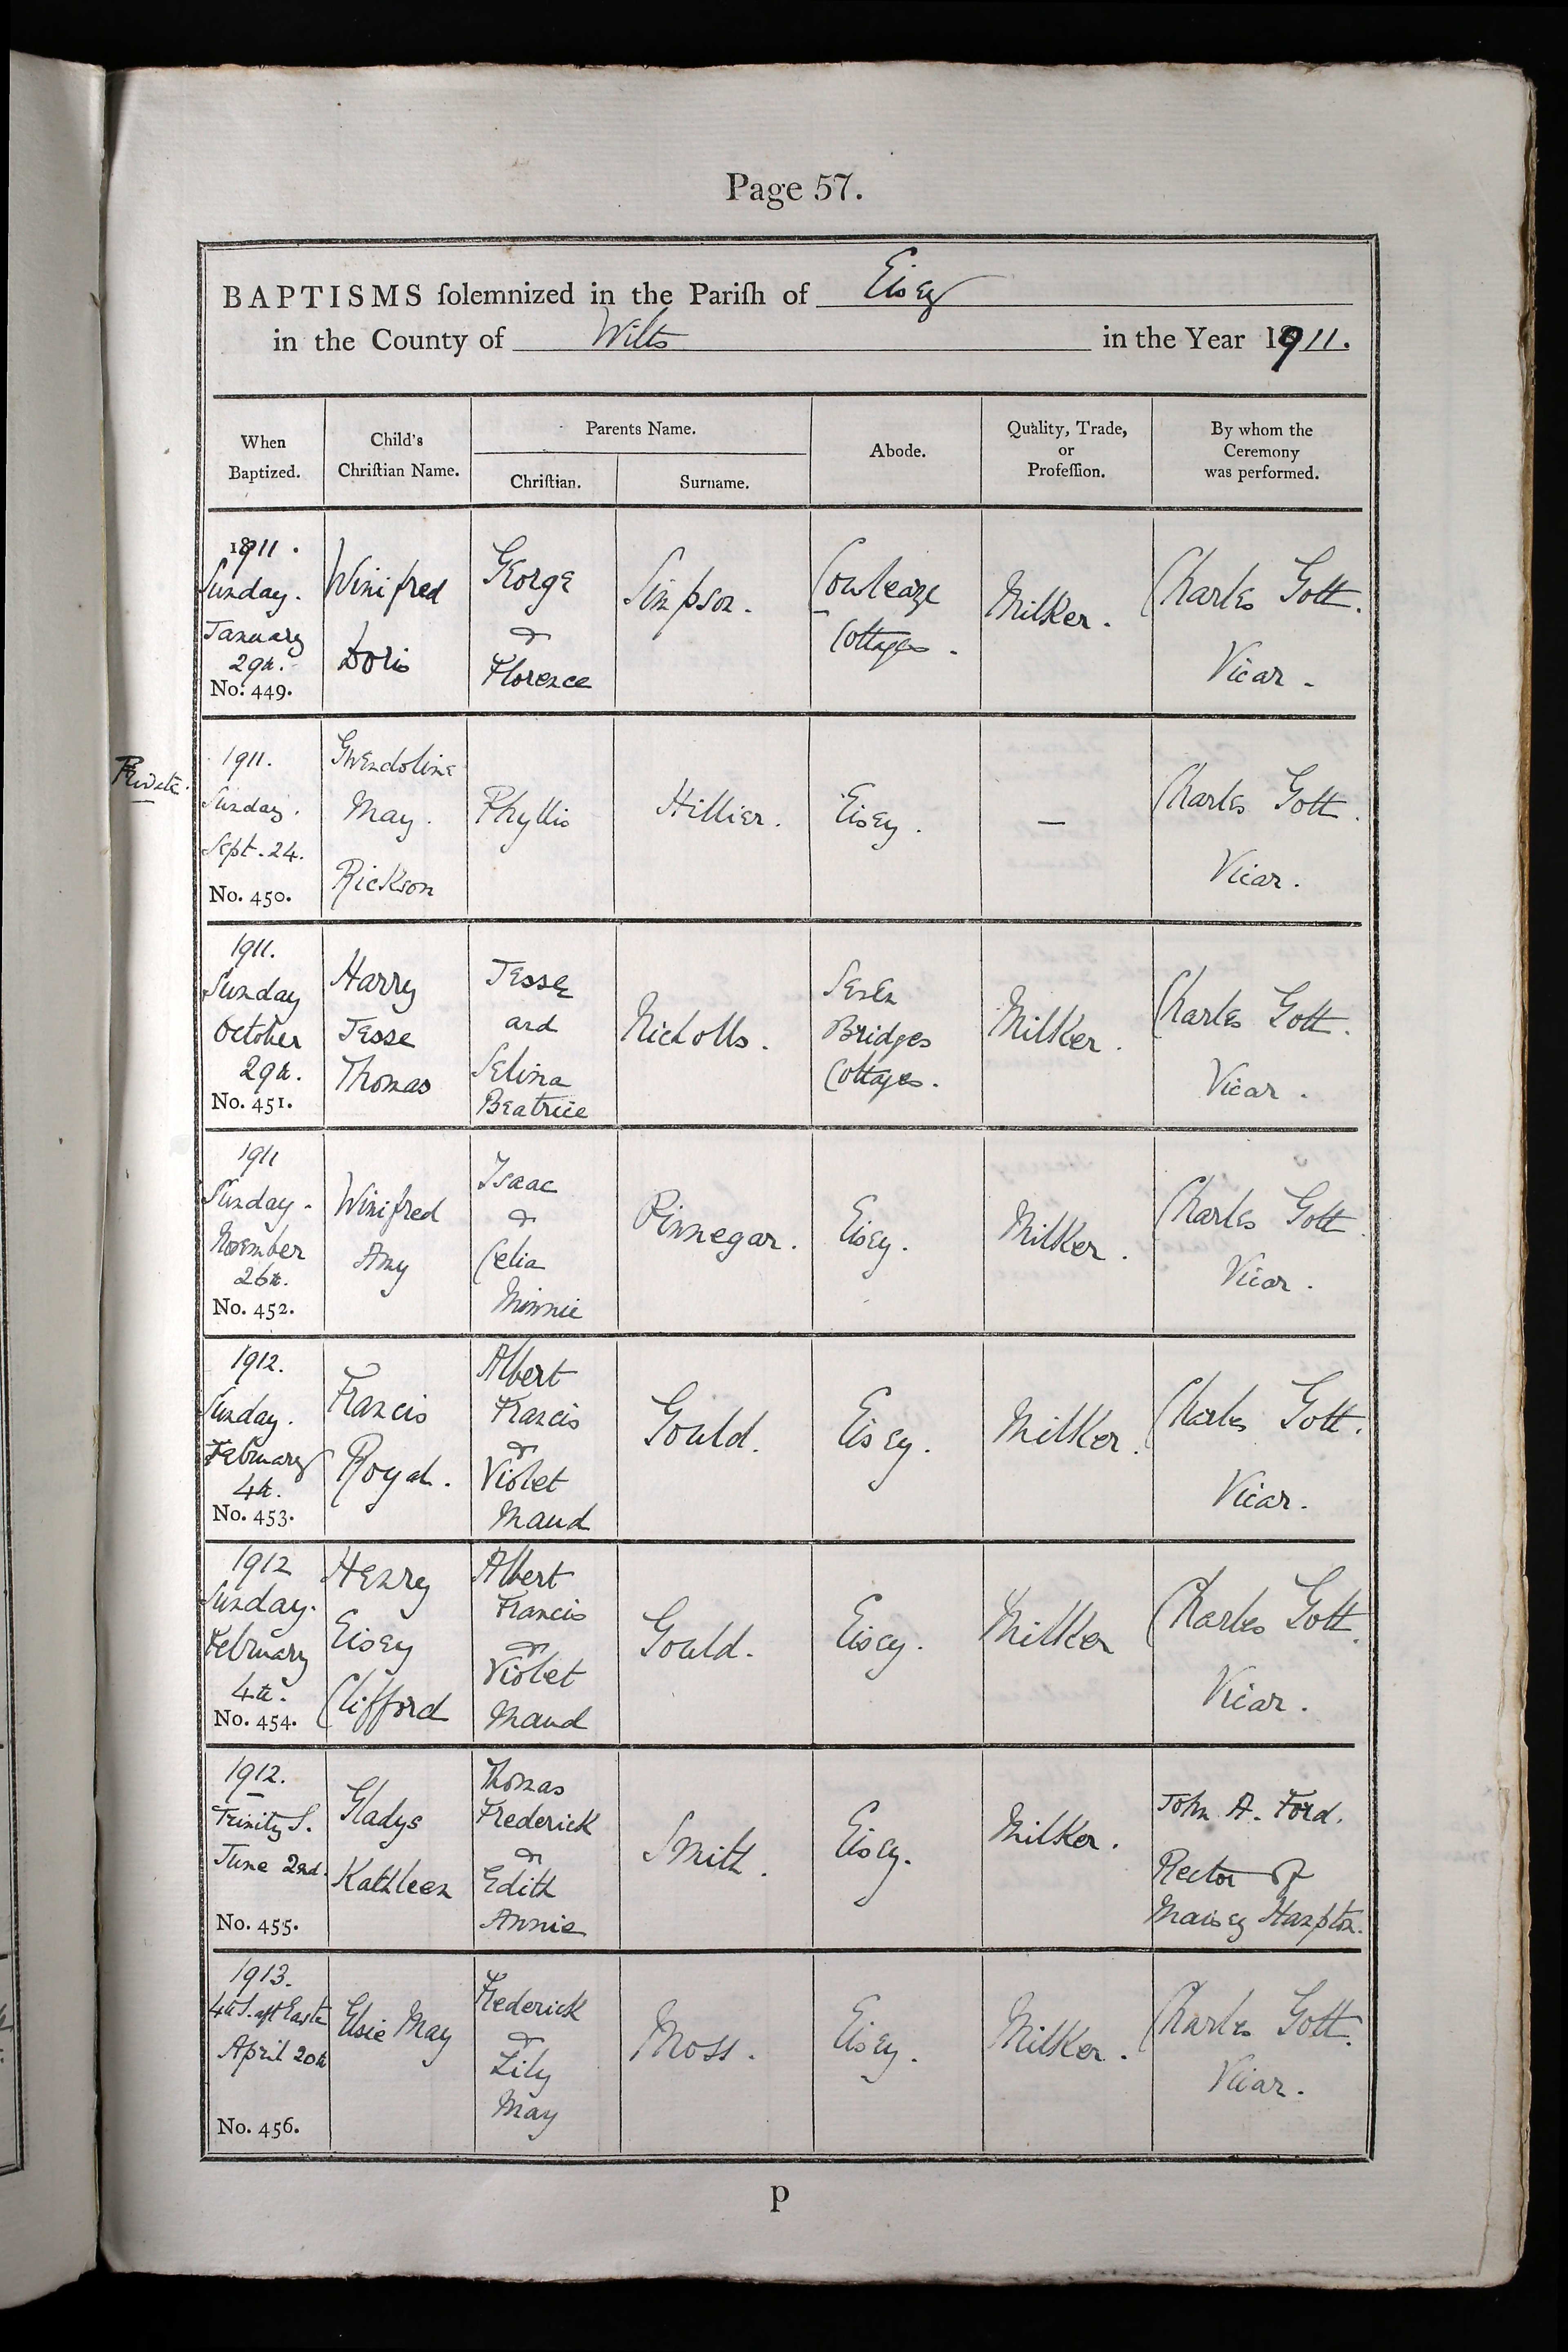 Page 57.
BAPTISMS ſolemnized in the Pariſh of Eisey
in the County of Wilts in the Year 1911.
When Baptized.
Child's Chriſtian Name.
Parents Name.
Chriſtian.
Surname.
Abode.
Quality, Trade, or Profeſſion.
By whom the Ceremony was performed.
1911.
Sunday.
January
29th.
No. 449.
Winifred
Doris
George
&
Florence
Simpson.
Cowleaze
Cottages.
Milker.
Charles Gott.
Vicar.
Private.
1911.
Sunday.
Sept. 24.
No. 450.
Gwendoline
May.
Rickson
Phyllis
Hillier.
Eisey.
—
Charles Gott.
Vicar.
1911.
Sunday
October
29th.
No. 451.
Harry
Jesse
Thomas
Jesse
and
Selina
Beatrice
Nicholls.
Seven
Bridges
Cottages.
Milker.
Charles Gott.
Vicar.
1911
Sunday.
November
26th.
No. 452.
Winifred
Amy
Isaac
&
Celia
Minnie
Pinnegar.
Eisey.
Milker.
Charles Gott.
Vicar.
1912.
Sunday.
February
4th.
No. 453.
Francis
Royal.
Albert
Francis
&
Violet
Maud
Gould.
Eisey.
Milker.
Charles Gott.
Vicar.
1912
Sunday.
February
4th.
No. 454.
Henry
Eisey
Clifford
Albert
Francis
&
Violet
Maud
Gould.
Eisey.
Milker
Charles Gott.
Vicar.
1912.
Trinity S.
June 2nd.
No. 455.
Gladys
Kathleen
Thomas
Frederick
&
Edith
Annie
Smith.
Eisey.
Milker.
John A. Ford.
Rector of
Maisey Hampton.
1913.
4th S. aft Easter
April 20th
No. 456.
Elsie May
Frederick
&
Lily
May
Moss.
Eisey.
Milker.
Charles Gott.
Vicar.
P